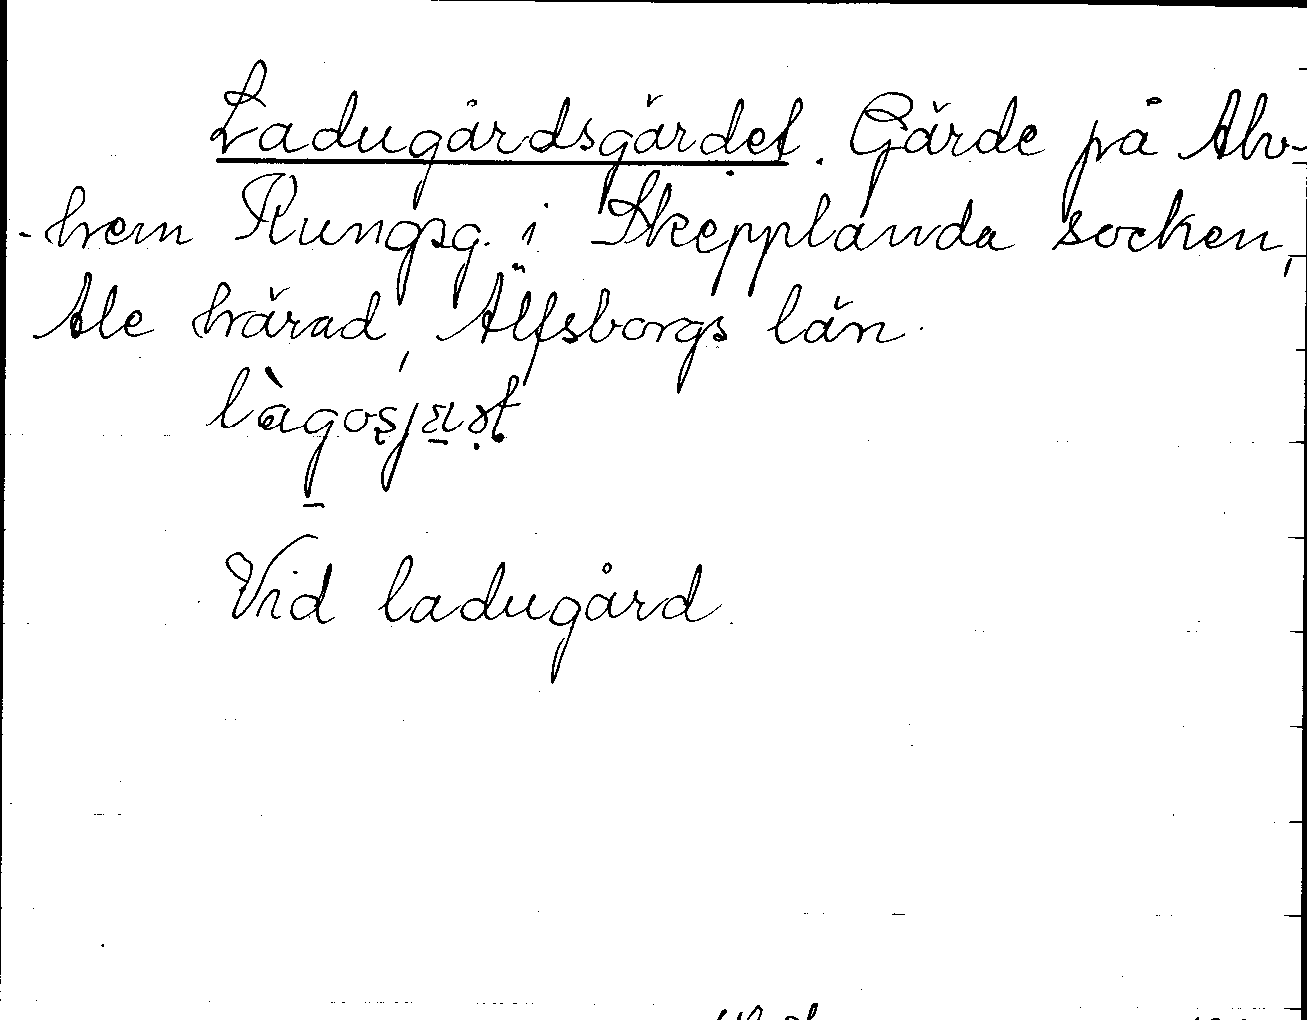 Ladugårdsgärdet. Gärde på Alv-
-hem Kungsg. i Skepplanda socken,
Ale härad, Älfsborgs län.
Vid ladugård.